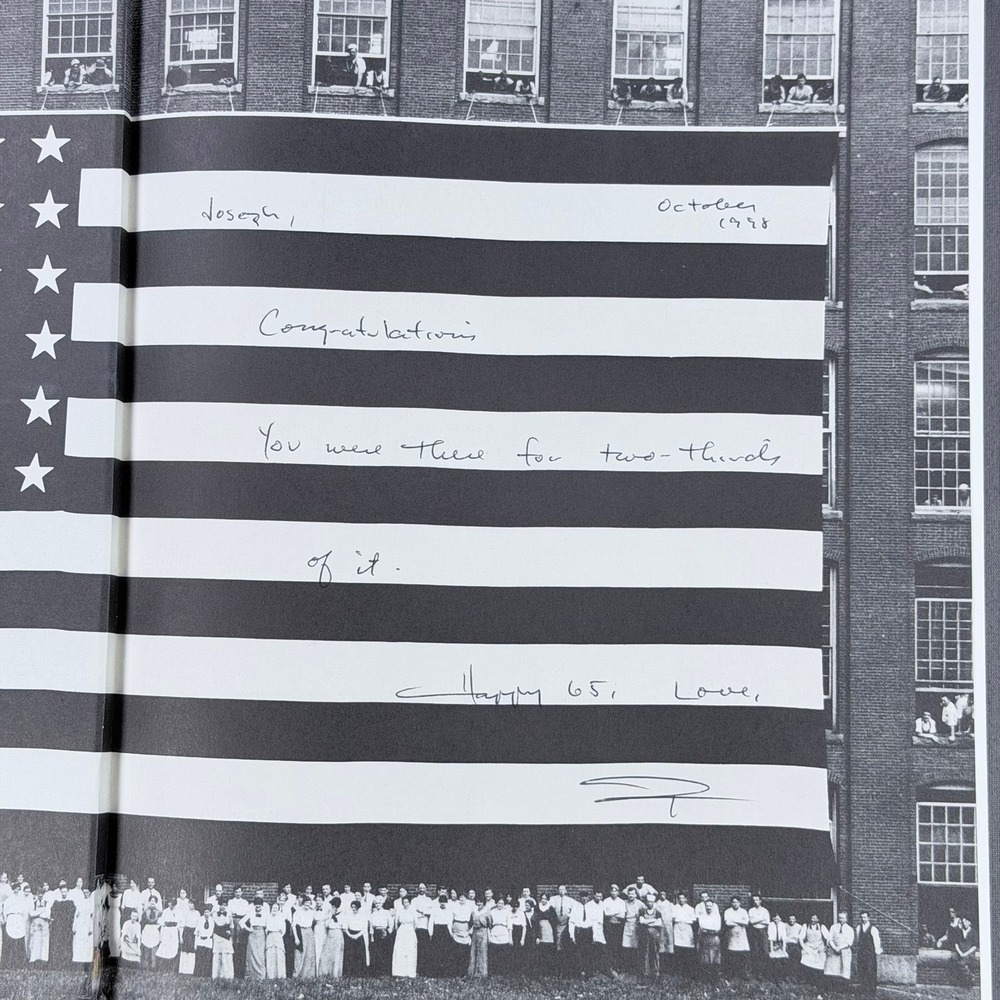 Joseph,
October
1998
Congratulations
You were there for two-thirds
of it.
Happy 65, Love,